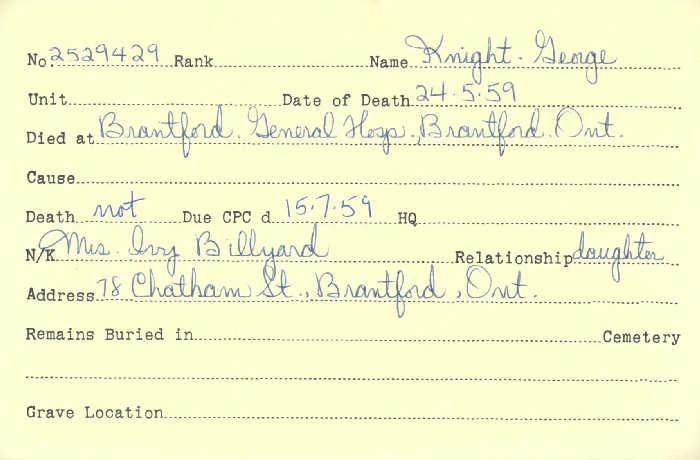 No 2529429 Rank Name Knight. George
Unit Date of Death 24.5.59
Died at Brantford General Hosp. Brantford. Ont.
Cause
Death not Due CPC d. 15.7.59 HQ
N/K Mrs. Ivy Billyard Relationship daughter
Address 78 Chatham St., Brantford, Ont.
Remains Buried in Cemetery
Grave Location